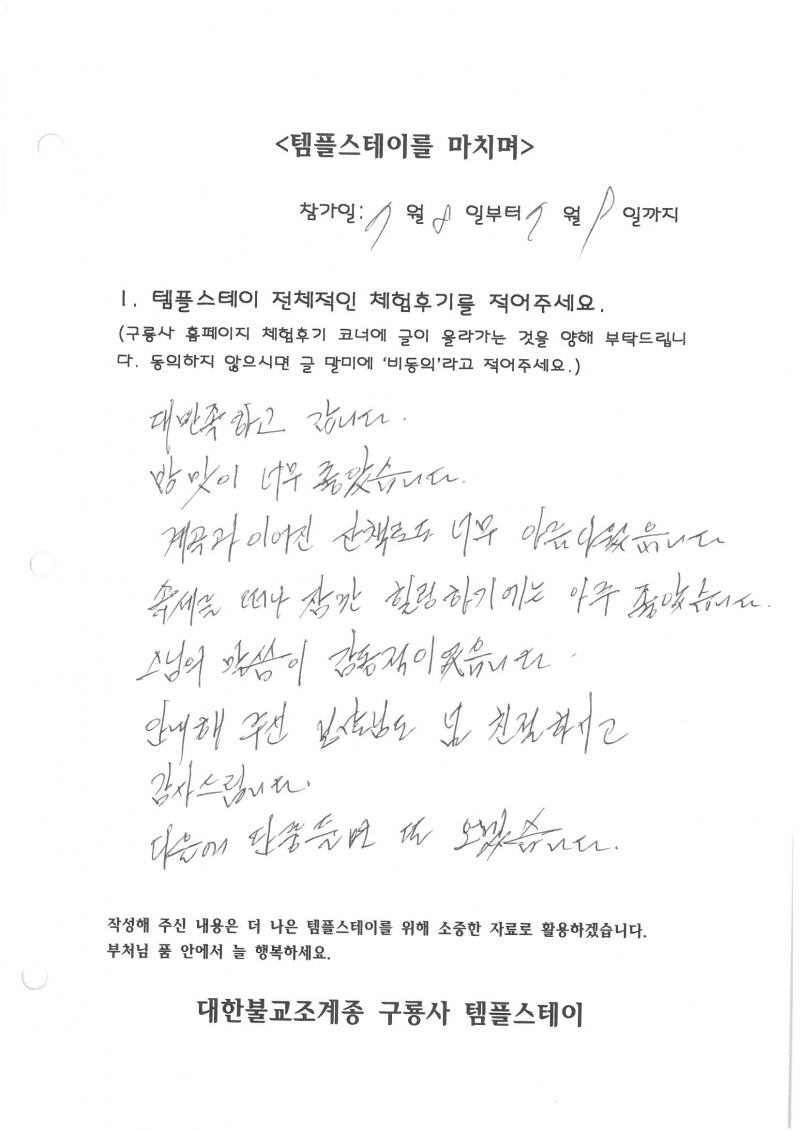 <템플스테이를 마치며>
참가일: 5 월 8 일부터 5 월 9 일까지
1. 템플스테이 전체적인 체험후기를 적어주세요.
(구룡사 홈페이지 체험후기 코너에 글이 올라가는 것을 양해 부탁드립니
다. 동의하지 않으시면 글 말미에 '비동의'라고 적어주세요.)
대만족하고 갑니다.
밥맛이 너무 좋았습니다.
계곡과 이어진 산책로도 너무 아름다웠읍니다
속세를 떠나 잠깐 힐링하기에는 아주 좋았습니다.
스님의 말씀이 감동적이였읍니다.
안내해 주신 보살님도 넘 친절하시고
감사드립니다.
다음에 단풍들면 또 오겠습니다.
작성해 주신 내용은 더 나은 템플스테이를 위해 소중한 자료로 활용하겠습니다.
부처님 품 안에서 늘 행복하세요.
대한불교조계종 구룡사 템플스테이